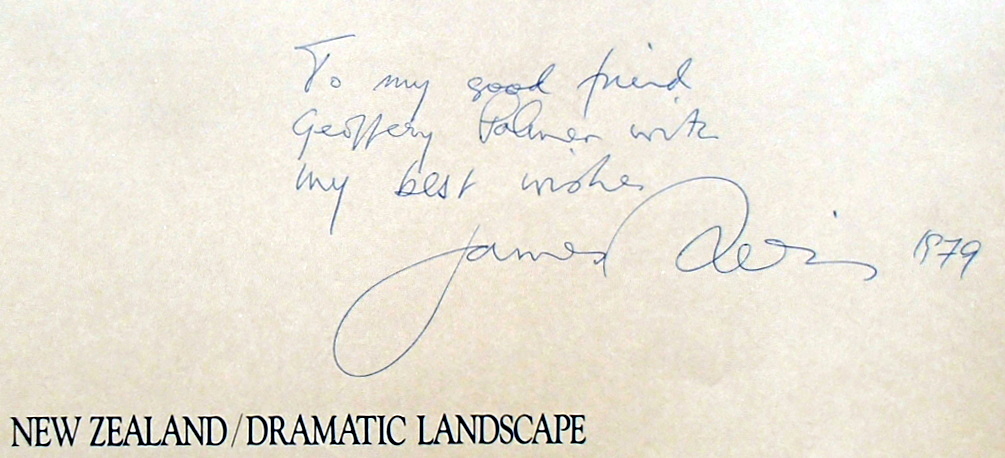 To my good friend
Geoffery Palmer with
my best wishes
James 1979
NEW ZEALAND/DRAMATIC LANDSCAPE